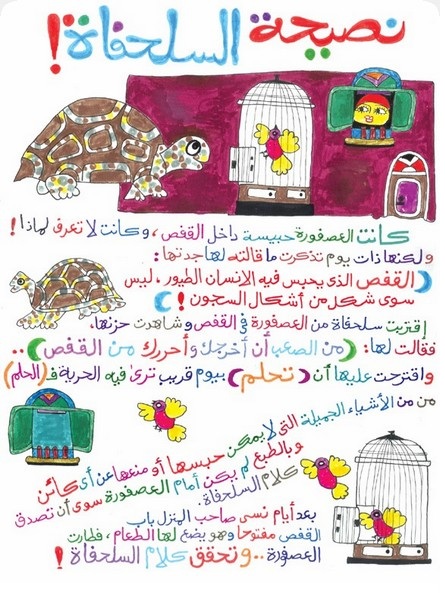 نصيحة السلحفاة !
كانت العصفورة حبيسة داخل القفص ، وكانت لا تعرف لماذا !
ولكنها ذات يوم تذكرت ما قالته لها جدتها :
( القفص الذى يحبس فيه الإنسان الطيور ، ليس
سوى شكل من أشكال السجون ) !
إقتربت سلحفاة من العصفورة فى القفص وشاهدت حزنها ،
فقالت لها : ( من الصعب أن أخرجك وأحررك من القفص ) ..
واقترحت عليها أن ( تحلم ) بيوم قريب ترى فيه الحرية ف ( الحلم )
من من الأشياء الجميلة التى لا يمكن حبسها أو منعها عن أى كائن
وبالطبع لم يكن أمام العصفورة سوى أن تصدق
كلام السلحفاة .
بعد أيام نسى صاحب المنزل باب
القفص مفتوحا وهو يضع لها الطعام ، فطارت
العصفورة .. وتحقق كلام السلحفاة !